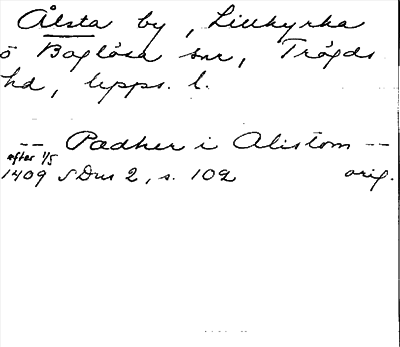 Ålsta by, Lillkyrka
o Boglösa snr, Trögds
hd, Upps. l.
-- Pædher i Alistom --
after 1/5
1409 SDns 2, s. 102 orig.